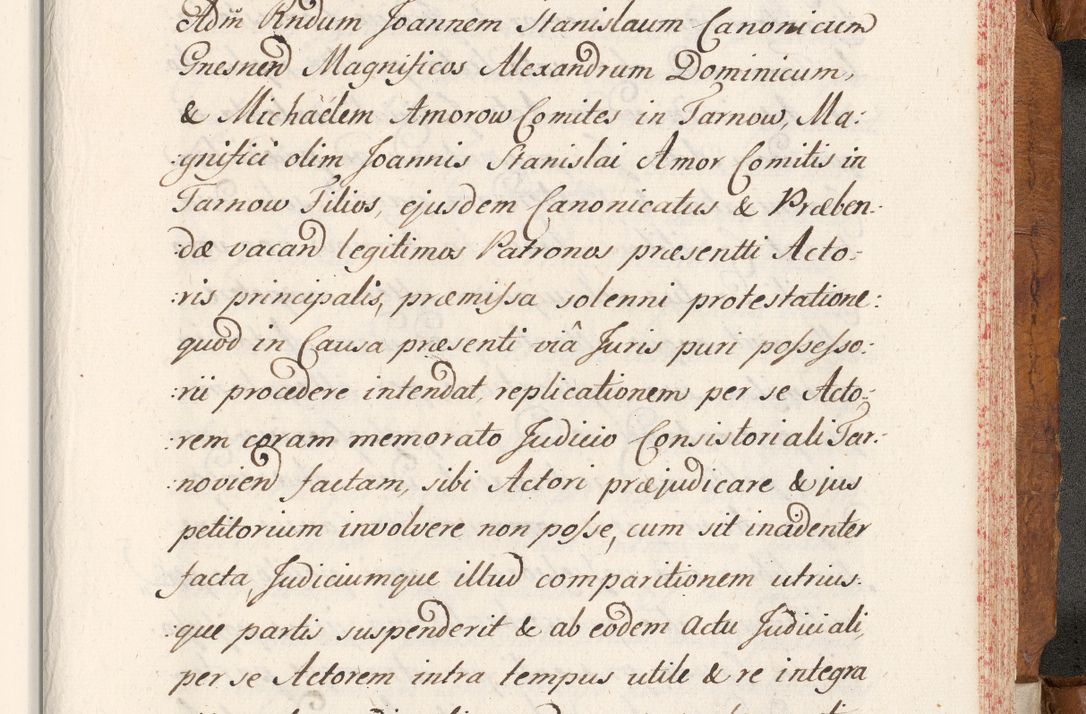 Adm Rndum Joannem Stanislaum Canonicum
Gnesnen Magnificos Alexandrum Dominicum,
& Michaëlem Amorow Comites in Tarnow, Ma:
:gnifici olim Joannis Stanislai Amor Comitis in
Tarnow Filios, ejusdem Canonicatus & Præben:
:dæ vacand legitimos Patronos præsentti Acto:
:ris principalis, præmissa solenni protestatione:
quod in Causa præsenti viâ Juris puri possesso:
:rii procedere intendat, replicationem per se Acto:
:rem coram memorato Judicio Consistoriali Tar:
:novien factam, sibi Actori præjudicare & jus
petitorium involvere non posse, cum sit incidenter
facta, Judiciumque illud comparitionem utrius:
:que partis suspenderit & ab eodem actu Judiciali,
per se Actorem intra tempus utile & re integra